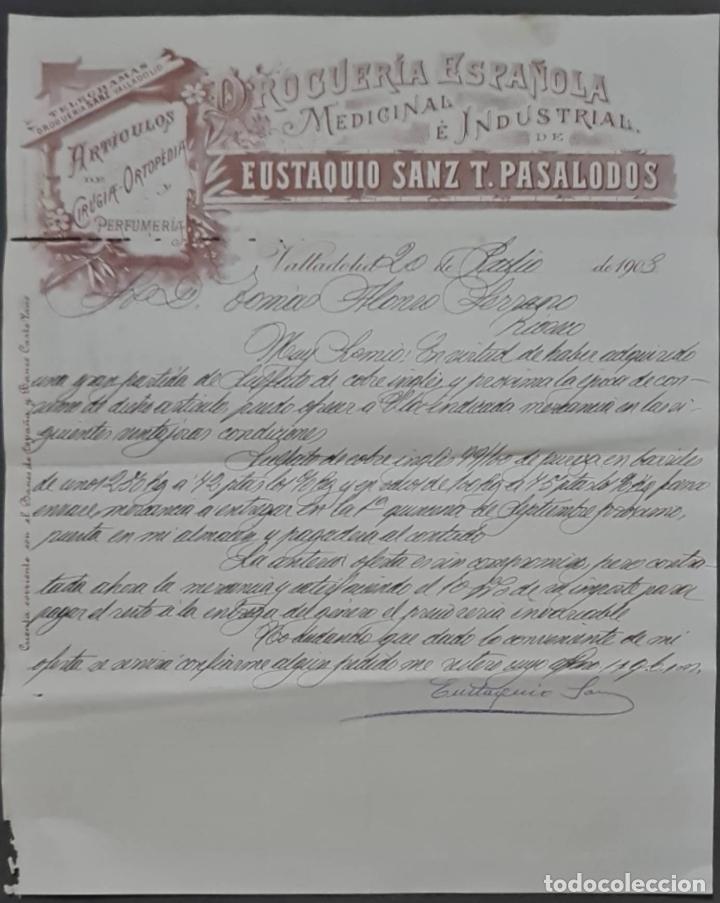 TELEGRAMAS
DROGUERIA SANZ VALLADOLID
ARTÍCULOS
DE
CIRUGIA-ORTOPÉDIA
Y
PERFUMERÍA
DROGUERÍA ESPAÑOLA
MEDICINAL É INDUSTRIAL
DE
EUSTAQUIO SANZ T. PASALODOS
Valladolid 20 de Julio de 1903
Sr. D. Tomás Alonso
Rioseco
Muy Sr mio: En virtud de haber adquirido
una gran partida de Sulfato de cobre inglés y proxima la época de con-
sumo de dicho articulo, puedo ofrecer a V. la indicada mercancia en las si-
guientes ventajosas condiciones
Sulfato de cobre inglés 99/100 de pureza en barriles
de unos 250 Kg a ptas los % Kg y en sacos de 100 Kg a ptas los % Kg para
mercancia a entregar en la 1ª quincena de Septiembre proximo,
puesta en mi almacen y pagadera al contado
La anterior oferta es sin compromiso, pero contra-
tada ahora la mercancia y satisfaciendo el 10 % de su importe para
pagar el resto á la entrega del genero el precio seria invariable
No dudando que dado lo conveniente de mi
oferta se servirá confiarme algun pedido me reitero suyo afmo s. s. q. b. s. m.
Eustaquio Sanz
Cuenta corriente con el Banco de España y Banco Castellano
todocoleccion.net